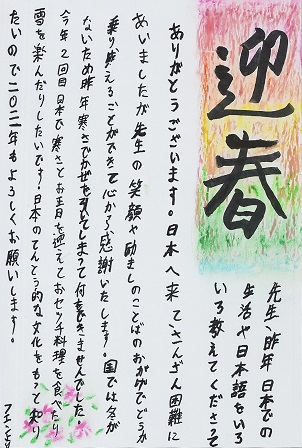 迎春
先生、昨年日本での
生活や日本語をいろ
いろ教えてくださって
ありがとうございます。日本へ来てさんざん困難に
あいましたが先生の笑顔や励ましのことばのおかげでどうか
乗り越えることができて心から感謝いたします。国では冬が
ないため昨年寒さでかぜを引いてしまって何もできませんでした。
今年2回目日本で寒さとお正月を迎えておセッチ料理を食べたり
雪を楽んだりしたいです!日本のでんとう的な文化をもって知り
たいので二〇二一年もよろしくお願いします。